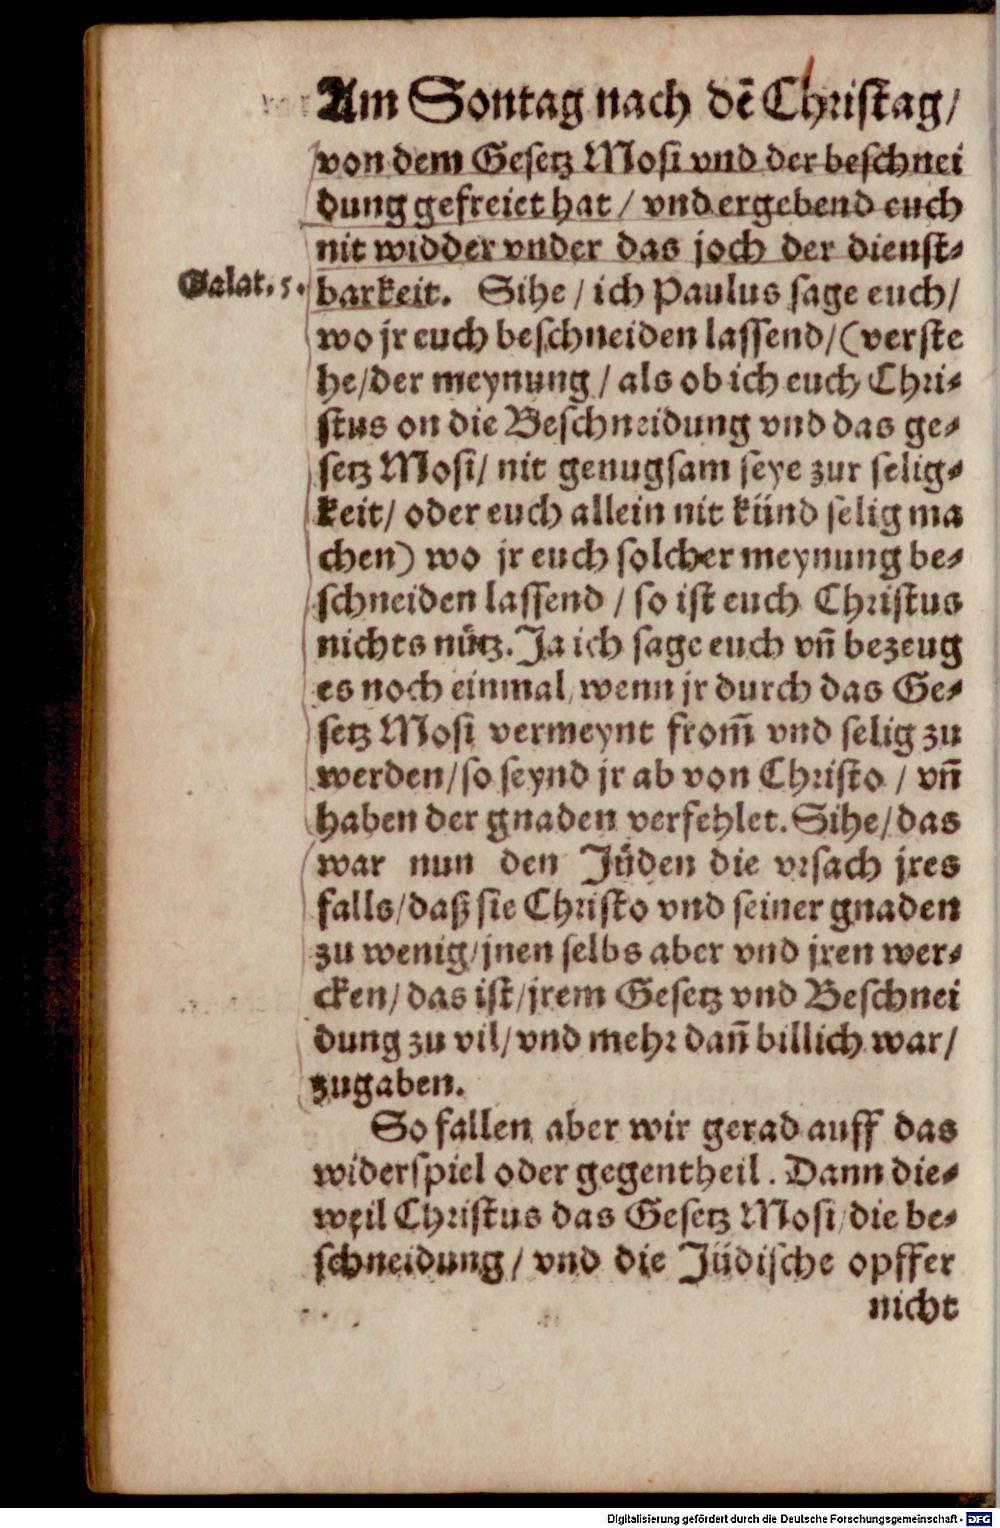 Am Sontag nach dē Christag/
von dem Gesetz Mosi vnd der beschnei
dung gefreiet hat / vnd ergebend euch
nit widder vnder das joch der dienst⸗
Galat. 5.
barkeit. Sihe / ich Paulus sage euch/
wo jr euch beschneiden lassend/(verste
he/der meynung / als ob ich euch Chri⸗
stus on die Beschneidung vnd das ge⸗
setz Mosi/ nit genugsam seye zur selig⸗
keit/ oder euch allein nit künd selig ma
chen) wo jr euch solcher meynung be⸗
schneiden lassend / so ist euch Christus
nichts nuͤtz. Ja ich sage euch vñ bezeug
es noch einmal/ wenn jr durch das Ge⸗
setz Mosi vermeynt from̄ vnd selig zu
werden/so seynd jr ab von Christo / vñ
haben der gnaden verfehlet. Sihe/das
war nun den Juͤden die vrsach jres
falls/daß sie Christo vnd seiner gnaden
zu wenig/jnen selbs aber vnd jren wer⸗
cken/ das ist/jrem Gesetz vnd Beschnei
dung zu vil/ vnd mehr dañ billich war/
zugaben.
So fallen aber wir gerad auff das
widerspiel oder gegentheil. Dann die⸗
weil Christus das Gesetz Mosi/die be⸗
schneidung / vnd die Jüdische opffer
nicht
Digitalisierung gefördert durch die Deutsche Forschungsgemeinschaft - DFG